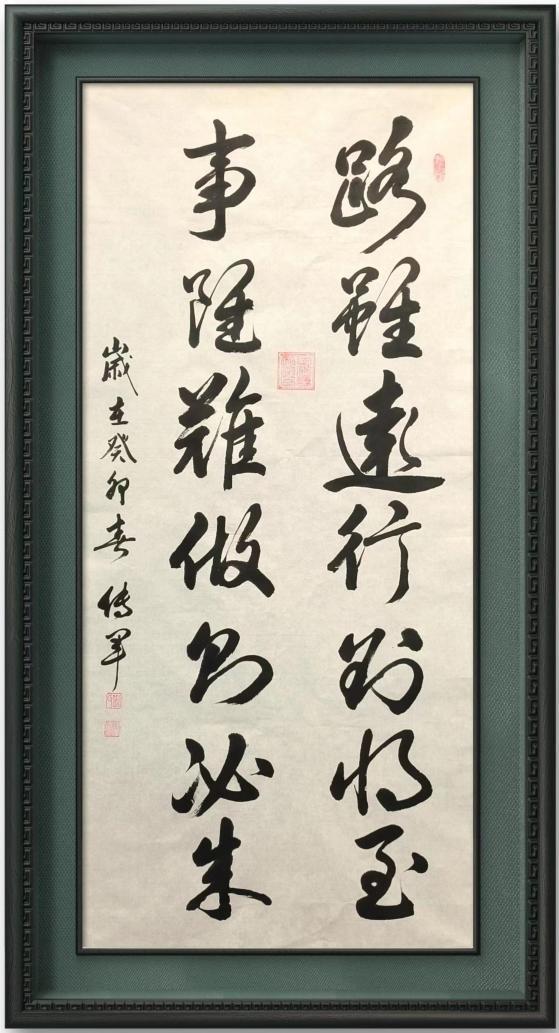 路雖遠行則將至
事雖難做則必成
歲在癸卯春 傳軍